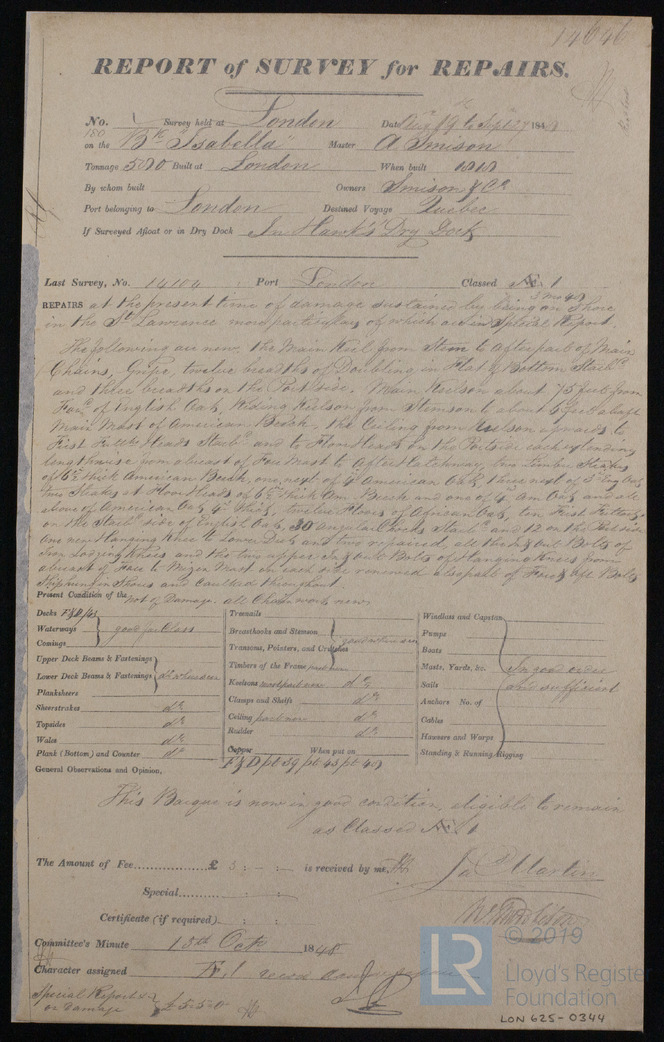 14646
REPORT of SURVEY for REPAIRS.
No. Survey held at London Date Augt 19 to Sept 27 1848
180
on the Bk "Isabella" Master A Smison
Tonnage Built at London When built 1818
By whom built Owners Smison & Co
Port belonging to London Destined Voyage Quebec
If Surveyed Afloat or in Dry Dock In Hawks' Dry Dock
Last Survey, No. 14104 Port London Classed Æ 1
REPAIRS at the present time of damage sustained by being on Shore
in the St Lawrence more particulars of which are in Special Report.
The following are new, the Main Keel from Stem to After part of Main
Chains, Gripe, twelve breadths of Doubling in Flat of Bottom Starbd
and three breadths on the Port side. Main Keelson about 75 feet from
Forwd of English Oak, Riding Keelson from Stemson to about 6 feet abaft
Main Mast of American Beech. the Ceiling from Keelson upwards to
First Futtk Heads Starbd and to Floor Heads on the Portside each extending
lengthwise from abreast of Fore Mast to After Hatchway, two limber Strakes
of 6½ thick American Beech, one next of 4 American Oak, three next of 3 Eng Oak
two Strakes at Floor Heads of 6½ thick Am. Beech and one of 4 Am Oak and all
above of American Oak 4 thick, twelve Floors of African Oak, ten First Futtocks
on the Starbd side of English Oak, 30 angular Chocks Starbd and 12 on the Port side
One new Hanging Knee to Lower Deck and two repaired, all the In & out Bolts of
Iron Lodging Knees and the two upper In & out Bolts of Hanging Knees from
abreast of Fore to Mizen Mast on each side renewed also part of Fore & Aft Bolts
Ship hung in Slings and caulked throughout.
Present Condition of the Not of Damage. all Chain work new
Decks F & D p/43
Waterways good for Class
Comings
Upper Deck Beams & Fastenings
Lower Deck Beams & Fastenings
Planksheers
Sheerstrakes do
Topsides do
Wales do
Plank (Bottom) and Counter do
Treenails
Breasthooks and Stemson good when seen
Transoms, Pointers, and Crutches
Timbers of the Frame part new
Keelsons most part new do
Clamps and Shelfs do
Ceiling part new do
Rudder do
Copper When put on
F & D pt 39 pt 43 pt 48
Windlass and Capstan
Pumps
Boats
Masts, Yards, &c. In good order
Sails and sufficient
Anchors No. of
Cables
Hawsers and Warps
Standing & Running Rigging
General Observations and Opinion,
This Barque is now in good condition, eligible to remain
as Classed Æ 1
The Amount of Fee............... £ 3 : - : is received by me,
Jas Martin
Special...............
Certificate (if required)
Committee's Minute 13th Octr 1848
Character assigned Æ 1
Special Report
on Damage £5.5.0
LR
© 2019
Lloyd's Register
Foundation
LON 625-0344